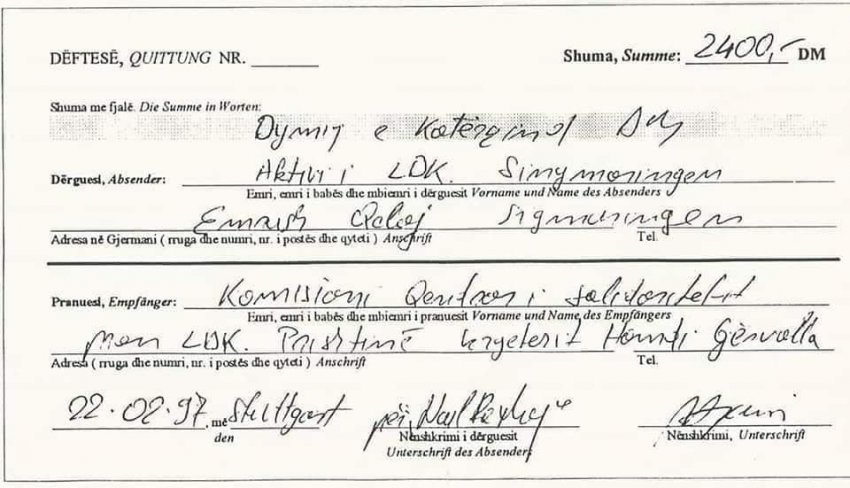 DËFTESË, QUITTUNG NR. ________ Shuma, Summe: 2400,- DM
Shuma me fjalë. Die Summe in Worten:
Dymij e Katërqind DM
Dërguesi, Absender: Aktivi i LDK. Singmaringen
Emri, emri i babës dhe mbiemri i dërguesit Vorname und Name des Absenders
Emrush Sigmaringen
Adresa në Gjermani ( rruga dhe numri, nr. i postës dhe qyteti ) Anschrift Tel.
Pranuesi, Empfänger: Komisioni Qendror i Solidaritetit
Emri, emri i babës dhe mbiemri i pranuesit Vorname und Name des Empfängers
LDK. Prishtinë kryetarit Hamdi Gërvalla
Adresa ( rruga dhe numri, nr. i postës dhe qyteti ) Anschrift Tel.
22.02.97, më Stuttgart për
den Nënshkrimi i dërguesit Nënshkrimi, Unterschrift
Unterschrift des Absenders